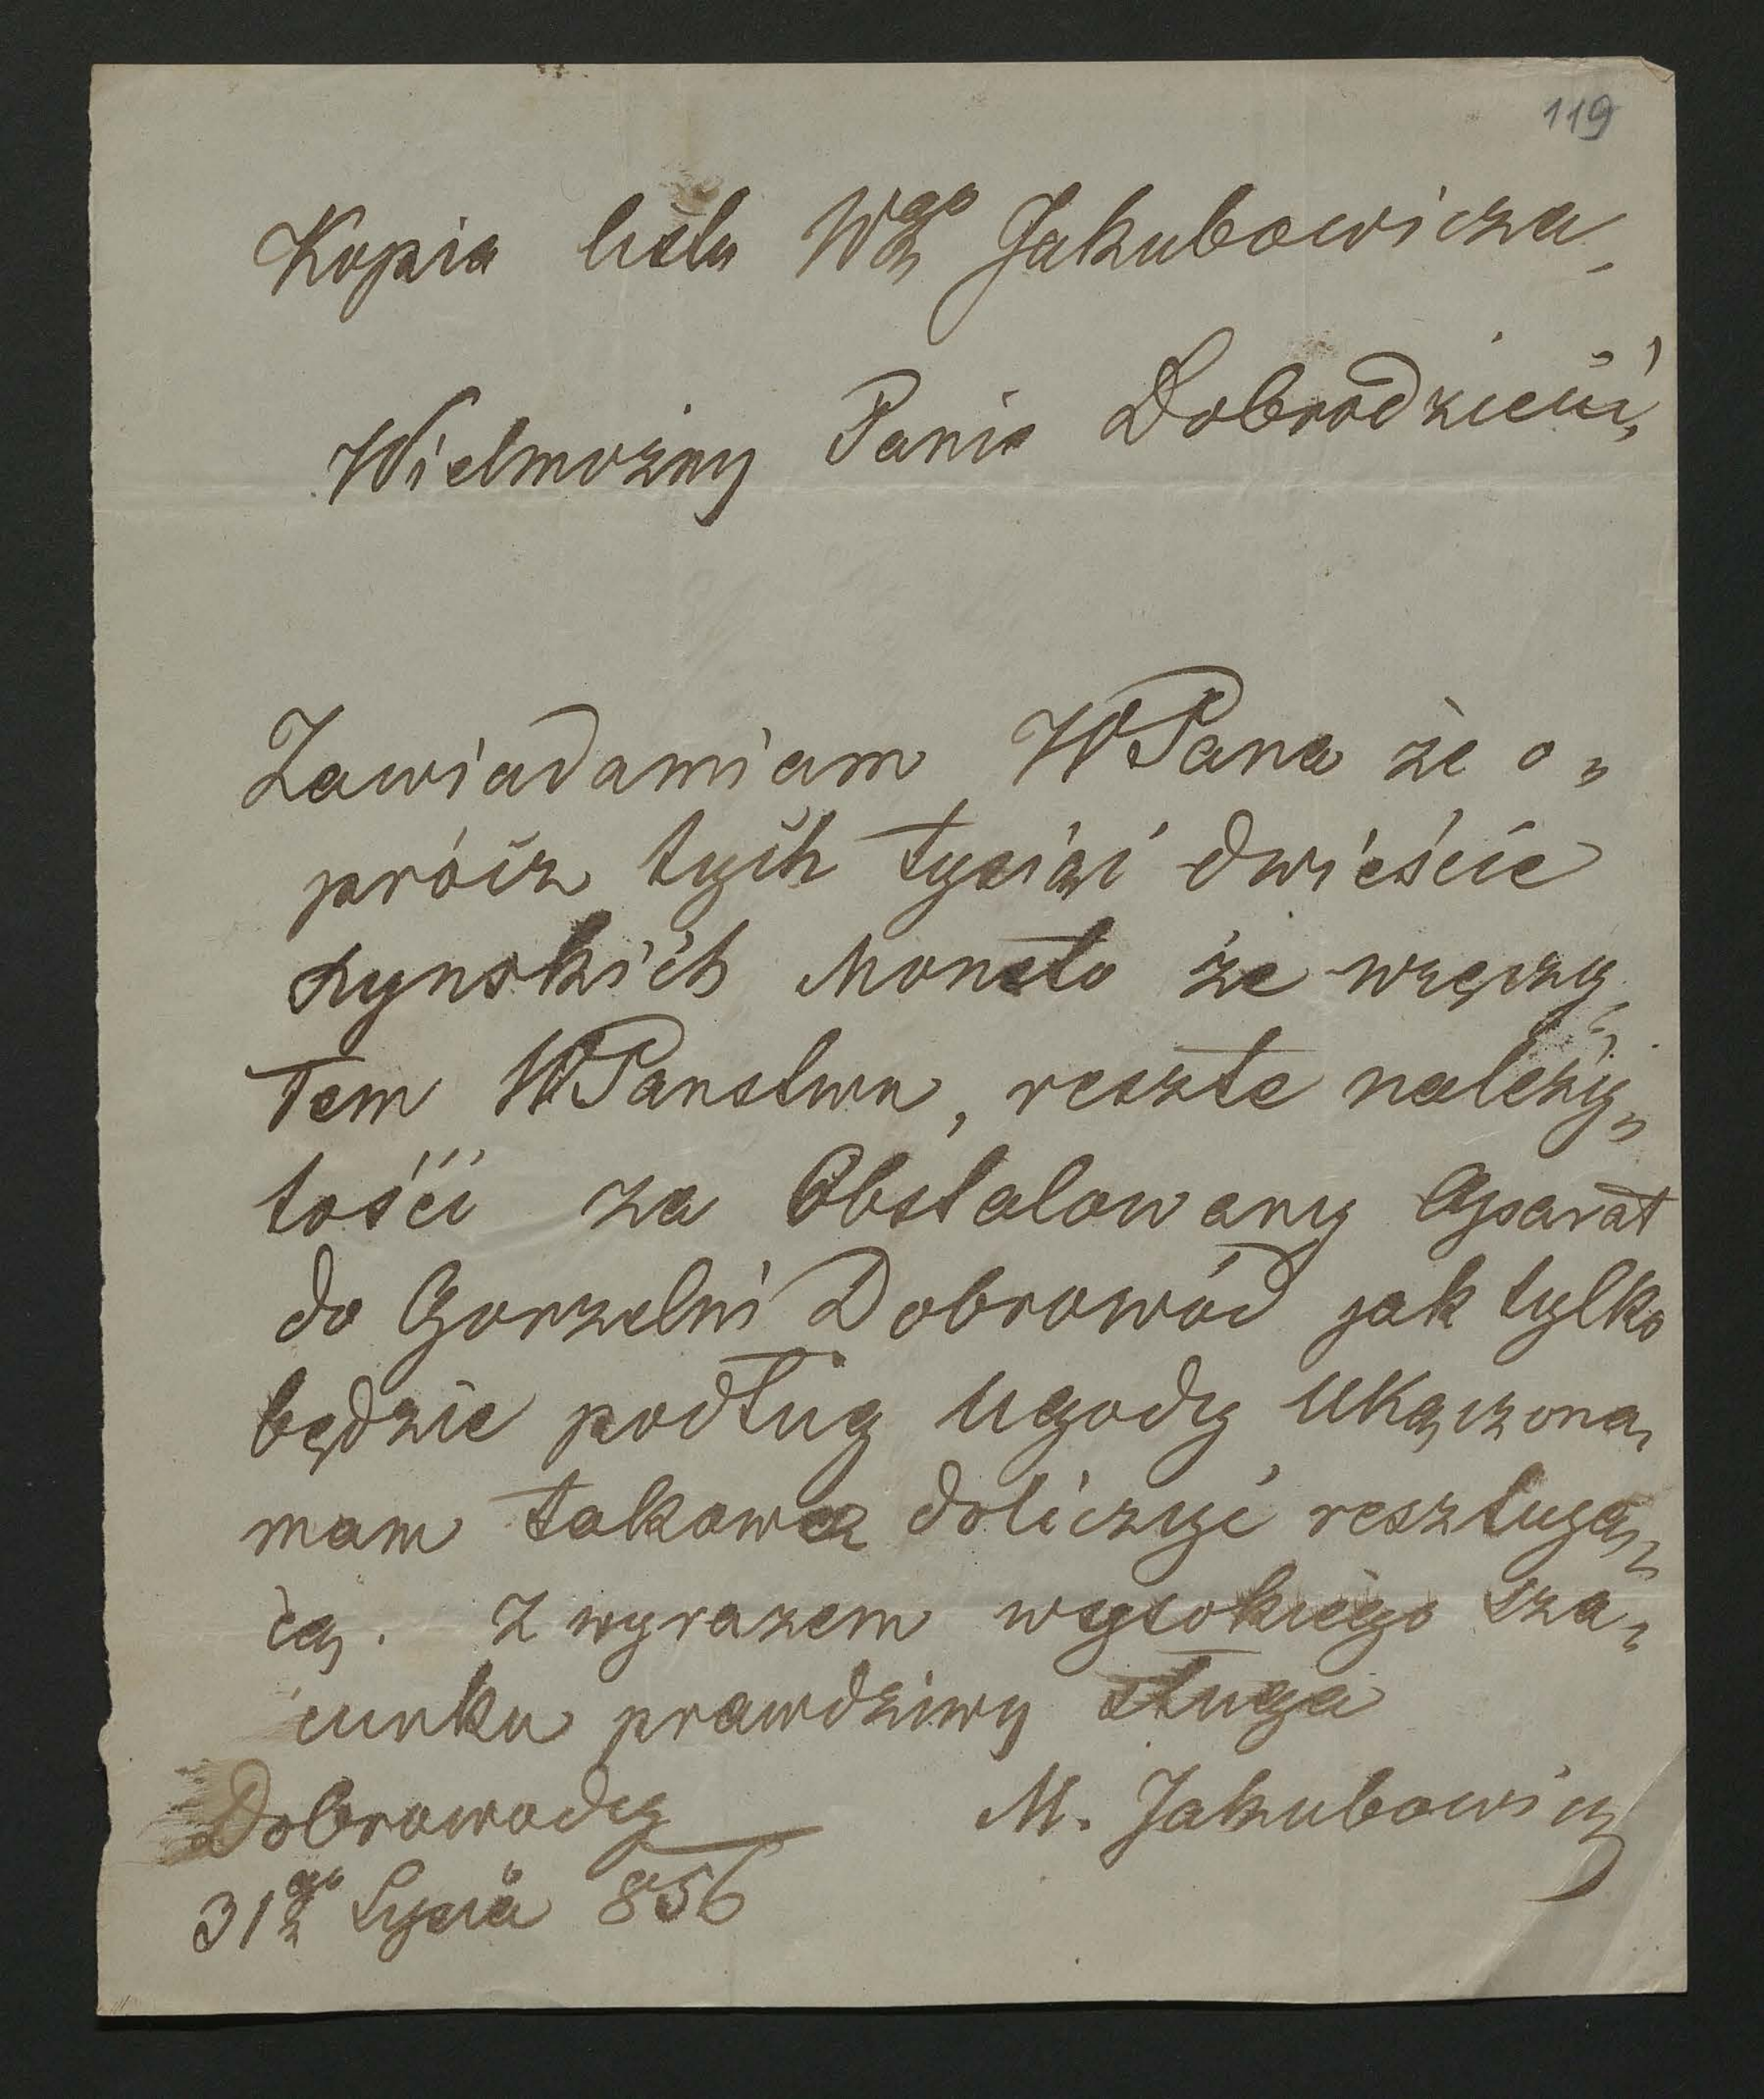 119
Kopia listu Wgo Jakubowicza,
Wielmożny Panie Dobrodzieiu,
Zawiadamiam WPana że o„
prócz tych tysiąc dwieście
rynskich Moneto że wręczy„
łem WPanstwu, reszte należy„
tości za Obstalowany Aparat
do Gorzelni Dobrowód jak tylko
będzie podług ugody ukączona,
mam takowa doliczyć resztują„
cą. Z wyrazem wysokiego sza„
cunku prawdziwy sługa
Dobrowody M. Jakubowicz
31go Lipca 856